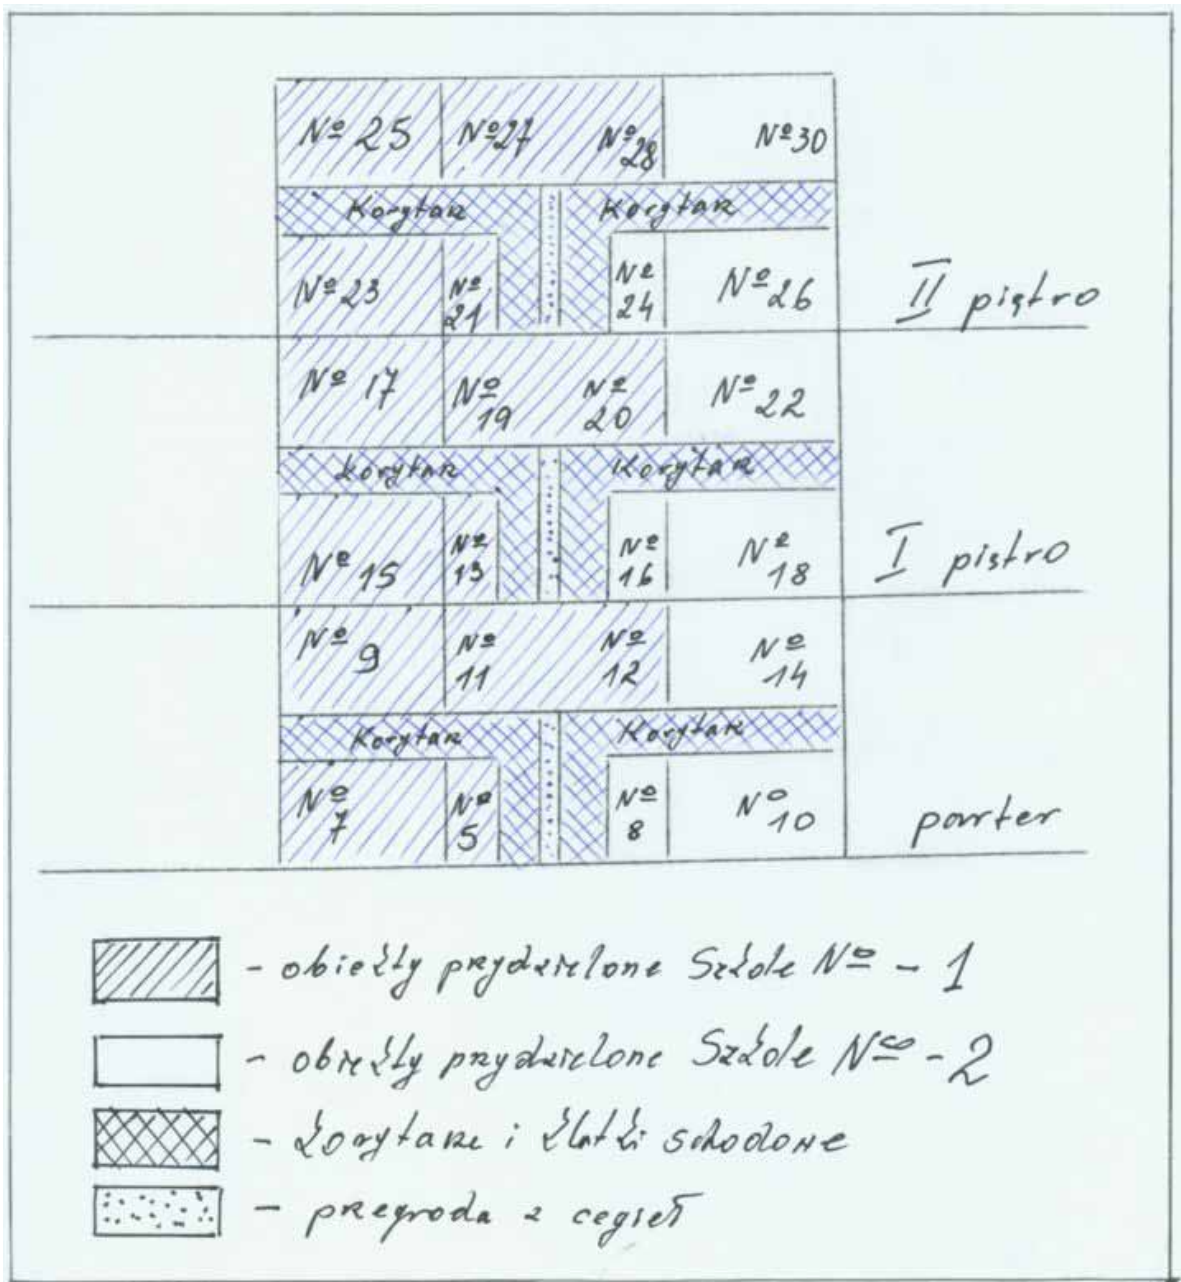 № 25 № 27 № 28 № 30
Korytaz Korytaz
№ 23 № 21 № 24 № 26
II piętro
№ 17 № 19 № 20 № 22
Korytaz Korytaz
№ 15 № 13 № 16 № 18
I piętro
№ 9 № 11 № 12 № 14
Korytaz Korytaz
№ 7 № 5 № 8 № 10
parter
- obiekty prydzielone Szkole № - 1
- obiekty prydzielone Szkole № - 2
- korytaze i klatki schodowe
- pregroda z cegieł